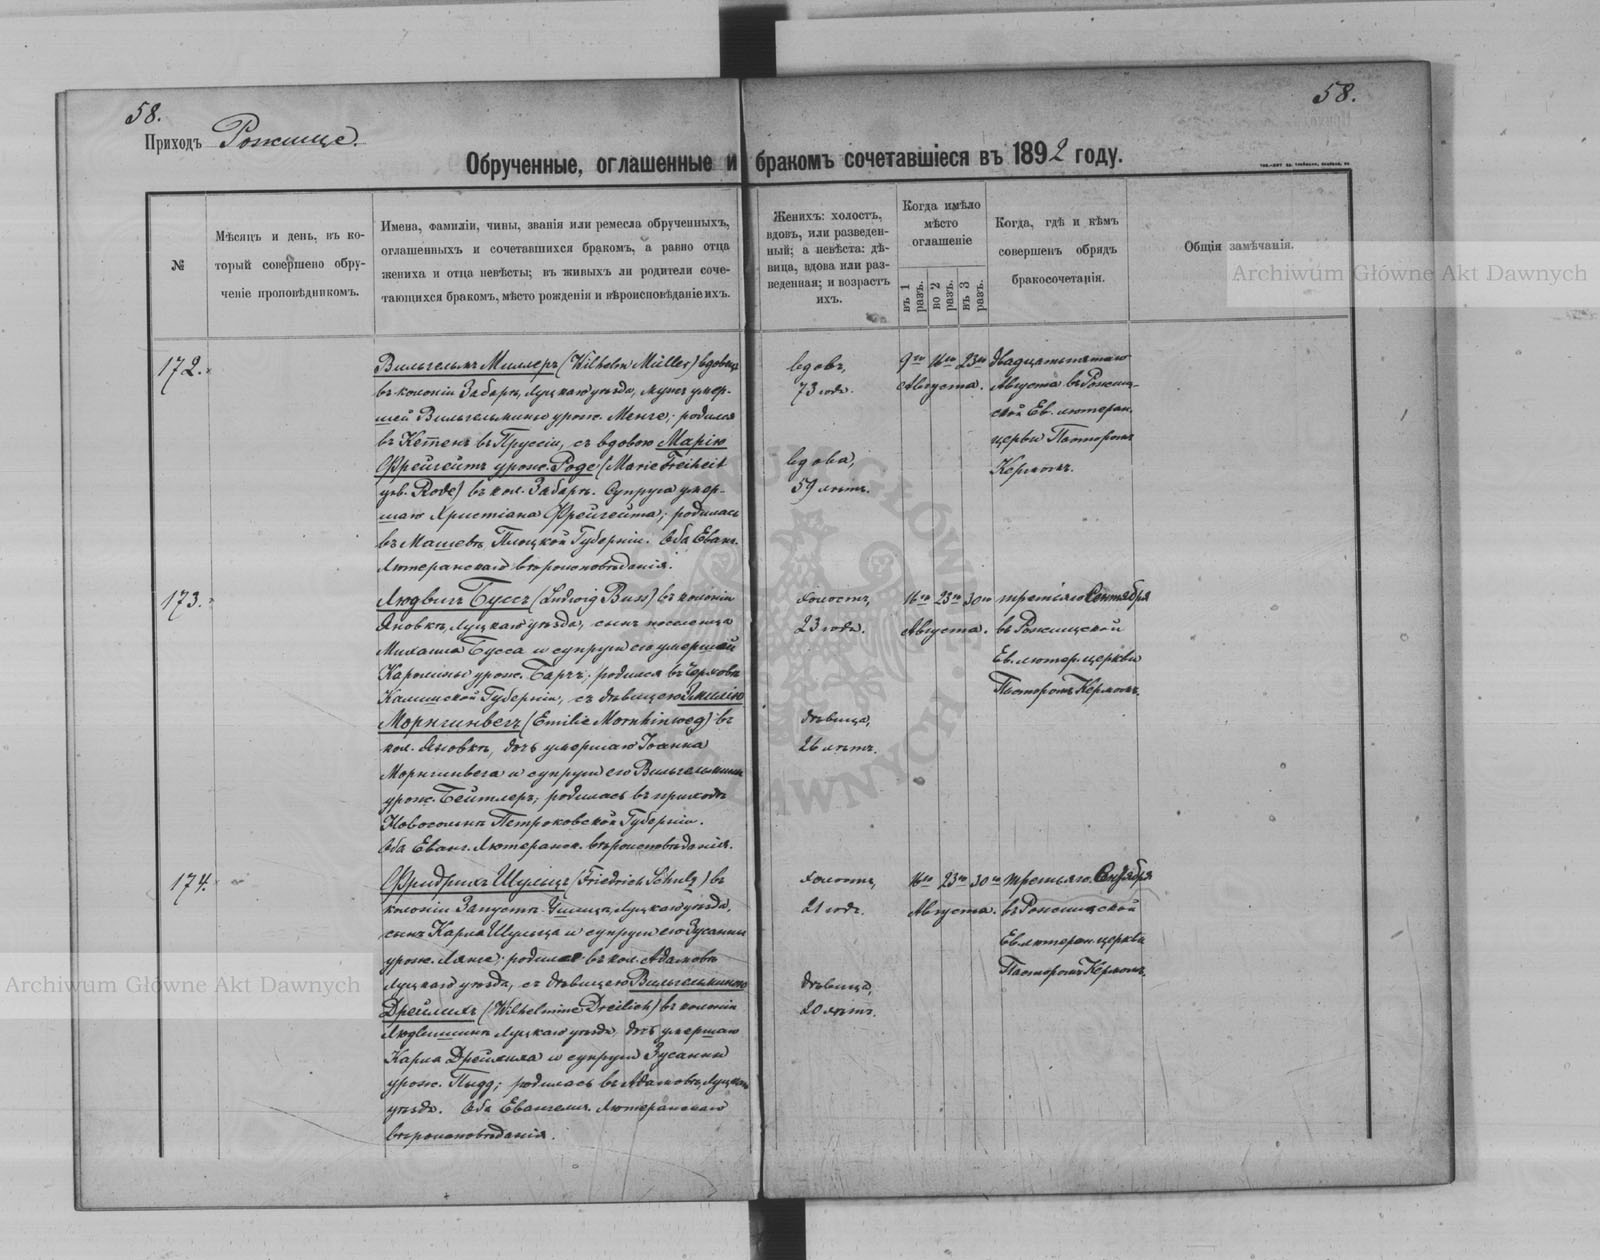 58.
58.
Приходъ Рожище.
Обрученные, оглашенные и бракомъ сочетавшіеся въ 1892 году.
№
Мѣсяцъ и день, въ ко-
торый совершено обру-
ченіе проповѣдникомъ.
Имена, фамиліи, чины, званія или ремесла обрученныхъ,
оглашенныхъ и сочетавшихся бракомъ, а равно отца
жениха и отца невѣсты; въ живыхъ ли родители соче-
тающихся бракомъ, мѣсто рожденія и вѣроисповѣданіе ихъ.
Женихъ: холостъ,
вдовъ, или разведен-
ный; а невѣста: дѣ-
вица, вдова или раз-
веденная; и возрастъ
ихъ.
Когда имѣло
мѣсто
оглашеніе
въ 1 разъ.
во 2 разъ.
въ 3 разъ.
Когда, гдѣ и кѣмъ
совершенъ обрядъ
бракосочетанія.
Общія замѣчанія.
Archiwum Główne Akt Dawnych
172.
Вильгельмъ Миллеръ (Wilhelm Müller) вдовецъ
въ колоніи Забара, Луцкаго уѣзда, мужъ умер-
шей Вильгельмины урож. Менге; родился
въ Кетенъ въ Пруссіи, съ вдовою Марію
Фрейгейтъ урож. Роде (Marie Freiheit
geb. Rode) въ кол. Забара. Супруга умер-
шаго Христіана Фрейгейта; родилась
въ Машевъ, Плоцкой Губерніи. Оба Еванг.
Лютеранскаго вѣроисповѣданія.
вдовъ,
73 года.
вдова,
59 лѣтъ.
9го 16го 23го
Августа.
двадцатьпятаго
Августа въ Рожищ-
ской Ев. лютеран.
церкви Пасторомъ
Кермомъ.
173.
Людвигъ Буссъ (Ludwig Buss) въ колоніи
Яновкѣ, Луцкаго уѣзда, сынъ поселенца
Михаила Бусса и супруги его умершей
Каролины урож. Барчъ; родился въ
Калишской Губерніи, съ дѣвицею Эмилію
Морнгинвегъ (Emilie Mornhinweg) въ
кол. Яновкѣ, дочь умершаго Іоанна
Морнгинвега и супруги его Вильгельмины
урож. Бейтлеръ; родилась въ приходѣ
Новосольна Петроковской Губерніи.
Оба Еванг. Лютеранск. вѣроисповѣданія.
холостъ,
23 года.
дѣвица,
26 лѣтъ.
16го 23го 30го
Августа.
третіяго Сентября
въ Рожищской
Ев. лютер. церкви
Пасторомъ Кермомъ.
174.
Фридрихъ Шульцъ (Friedrich Schulz) въ
колоніи Запустъ Луцкаго уѣзда,
сынъ Карла Шульца и супруги его Зусанны
урож. Ляже; родился въ кол. Адамовъ
Луцкаго уѣзда, съ дѣвицею Вильгельминою
Дрейлихъ (Wilhelmine Dreilich) въ колоніи
Луцкаго уѣзда, дочь умершаго
Карла Дрейлиха и супруги Зусанны
урож. Пидд; родилась въ Адамовъ, Луцкаго
уѣзда. Оба Евангелич. Лютеранскаго
вѣроисповѣданія.
холостъ,
21 годъ.
дѣвица,
20 лѣтъ.
16го 23го 30го
Августа.
третьяго Сентября
въ Рожищской
Ев. лютеран. церкви
Пасторомъ Кермомъ.
Archiwum Główne Akt Dawnych